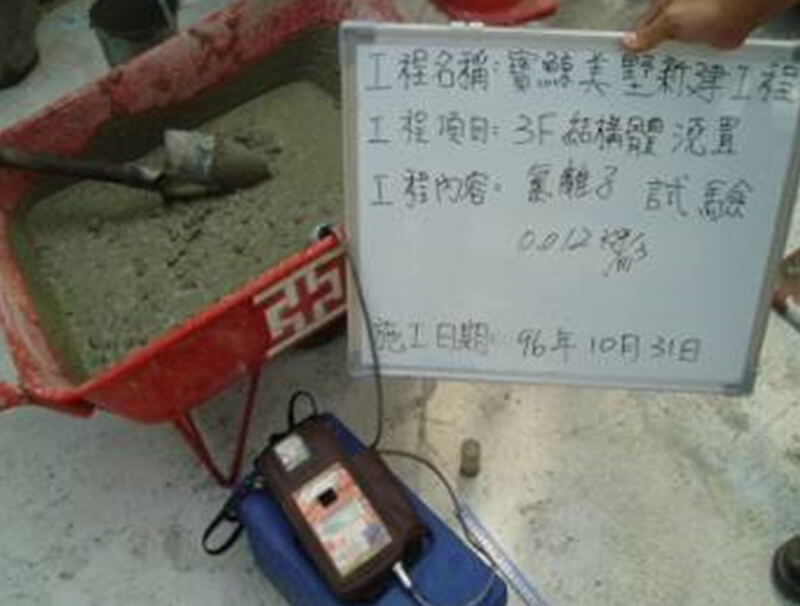 工程名稱:寶鯨美墅新建工程
工程項目:3F結構體澆置
工程內容:氯離子試驗
0.012 kg/m3
施工日期:96年10月31日